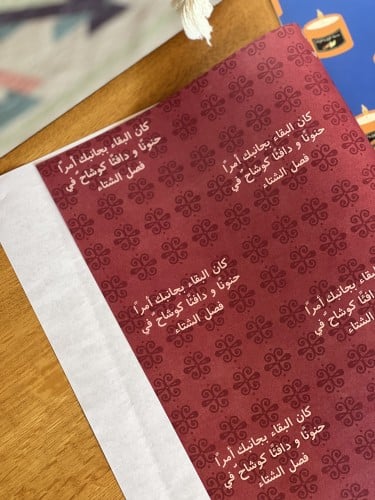 كان البقاء بجانبك أمرًا
حنونًا و دافئًا كوشاحّ في
فصل الشتاء
كان البقاء بجانبك أمرًا
حنونًا و دافئًا كوشاحّ في
فصل الشتاء
كان البقاء بجانبك أمرًا
حنونًا و دافئًا كوشاحّ في
فصل الشتاء
بجانبك أمرًا
و دافئًا كوشاحّ في
فصل الشتاء
كان البقاء بجانبك أمرًا
حنونًا و دافئًا كوشاحّ في
فصل الشتاء